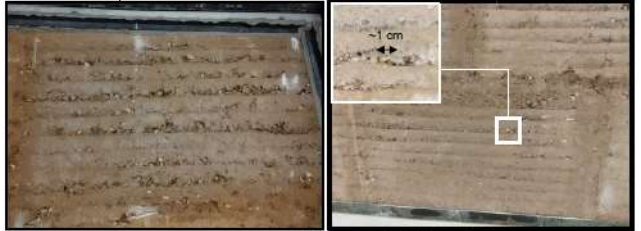 ~1 cm